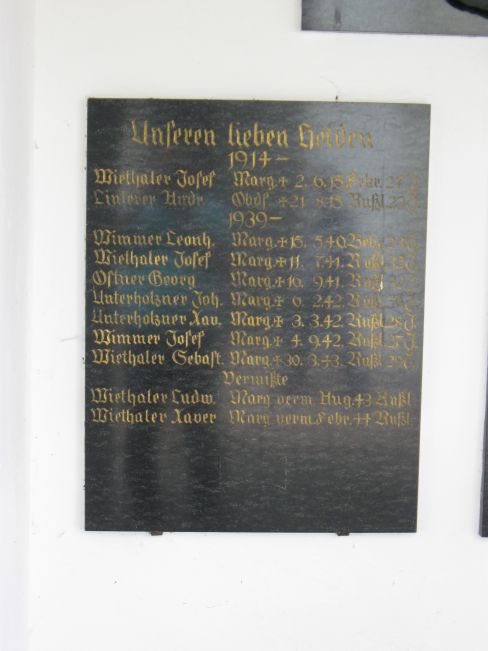 Unseren lieben Helden
1914 –
Wiethaler Josef Marg. + 2. 6. 15.
Obdf. + 21. 8. 15. Rußl.
1939 –
Wimmer Leonh. Marg. + 15. 5.40.
Wiethaler Josef Marg. + 11. 7.41. Rußl.
Ostner Georg Marg. + 16. 9.41. Rußl.
Unterholzner Joh. Marg. + 6. 2.42. Rußl.
Unterholzner Xav. Marg. + 3. 3.42. Rußl.
Wimmer Josef Marg. + 4. 9.42. Rußl.
Wiethaler Sebast. Marg. + 30. 3.43. Rußl.
Vermißte
Wiethaler Ludw. Marg verm. Aug.43 Rußl
Wiethaler Xaver Marg verm. Febr.44 Rußl